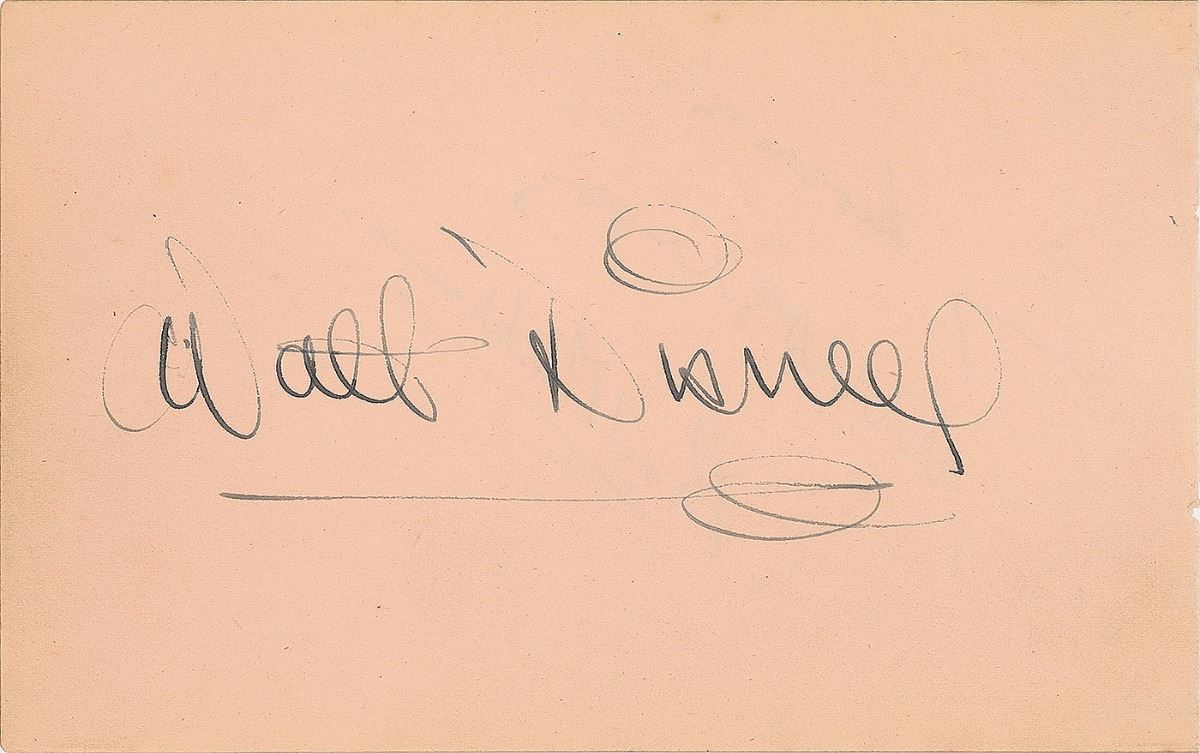 Walt Disney